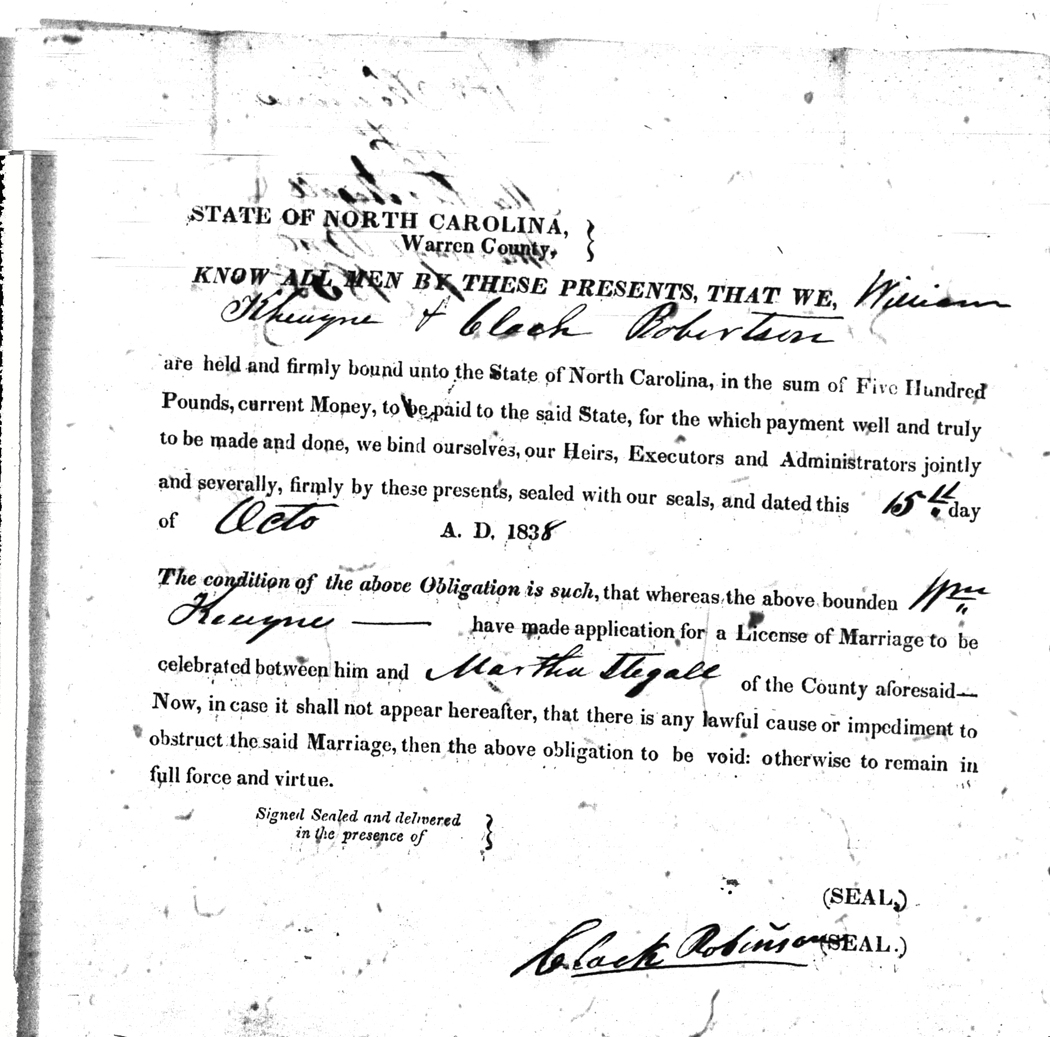 STATE OF NORTH CAROLINA,
Warren County.
KNOW ALL MEN BY THESE PRESENTS, THAT WE, William
& Clack Robertson
are held and firmly bound unto the State of North Carolina, in the sum of Five Hundred
Pounds, current Money, to be paid to the said State, for the which payment well and truly
to be made and done, we bind ourselves, our Heirs, Executors and Administrators jointly
and severally, firmly by these presents, sealed with our seals, and dated this 15th day
of Octo A. D. 1838
The condition of the above Obligation is such, that whereas the above bounden Wm
have made application for a License of Marriage to be
celebrated between him and Martha Stegall of the County aforesaid—
Now, in case it shall not appear hereafter, that there is any lawful cause or impediment to
obstruct the said Marriage, then the above obligation to be void: otherwise to remain in
full force and virtue.
Signed Sealed and delivered
in the presence of
(SEAL.)
Clack Robinson (SEAL.)